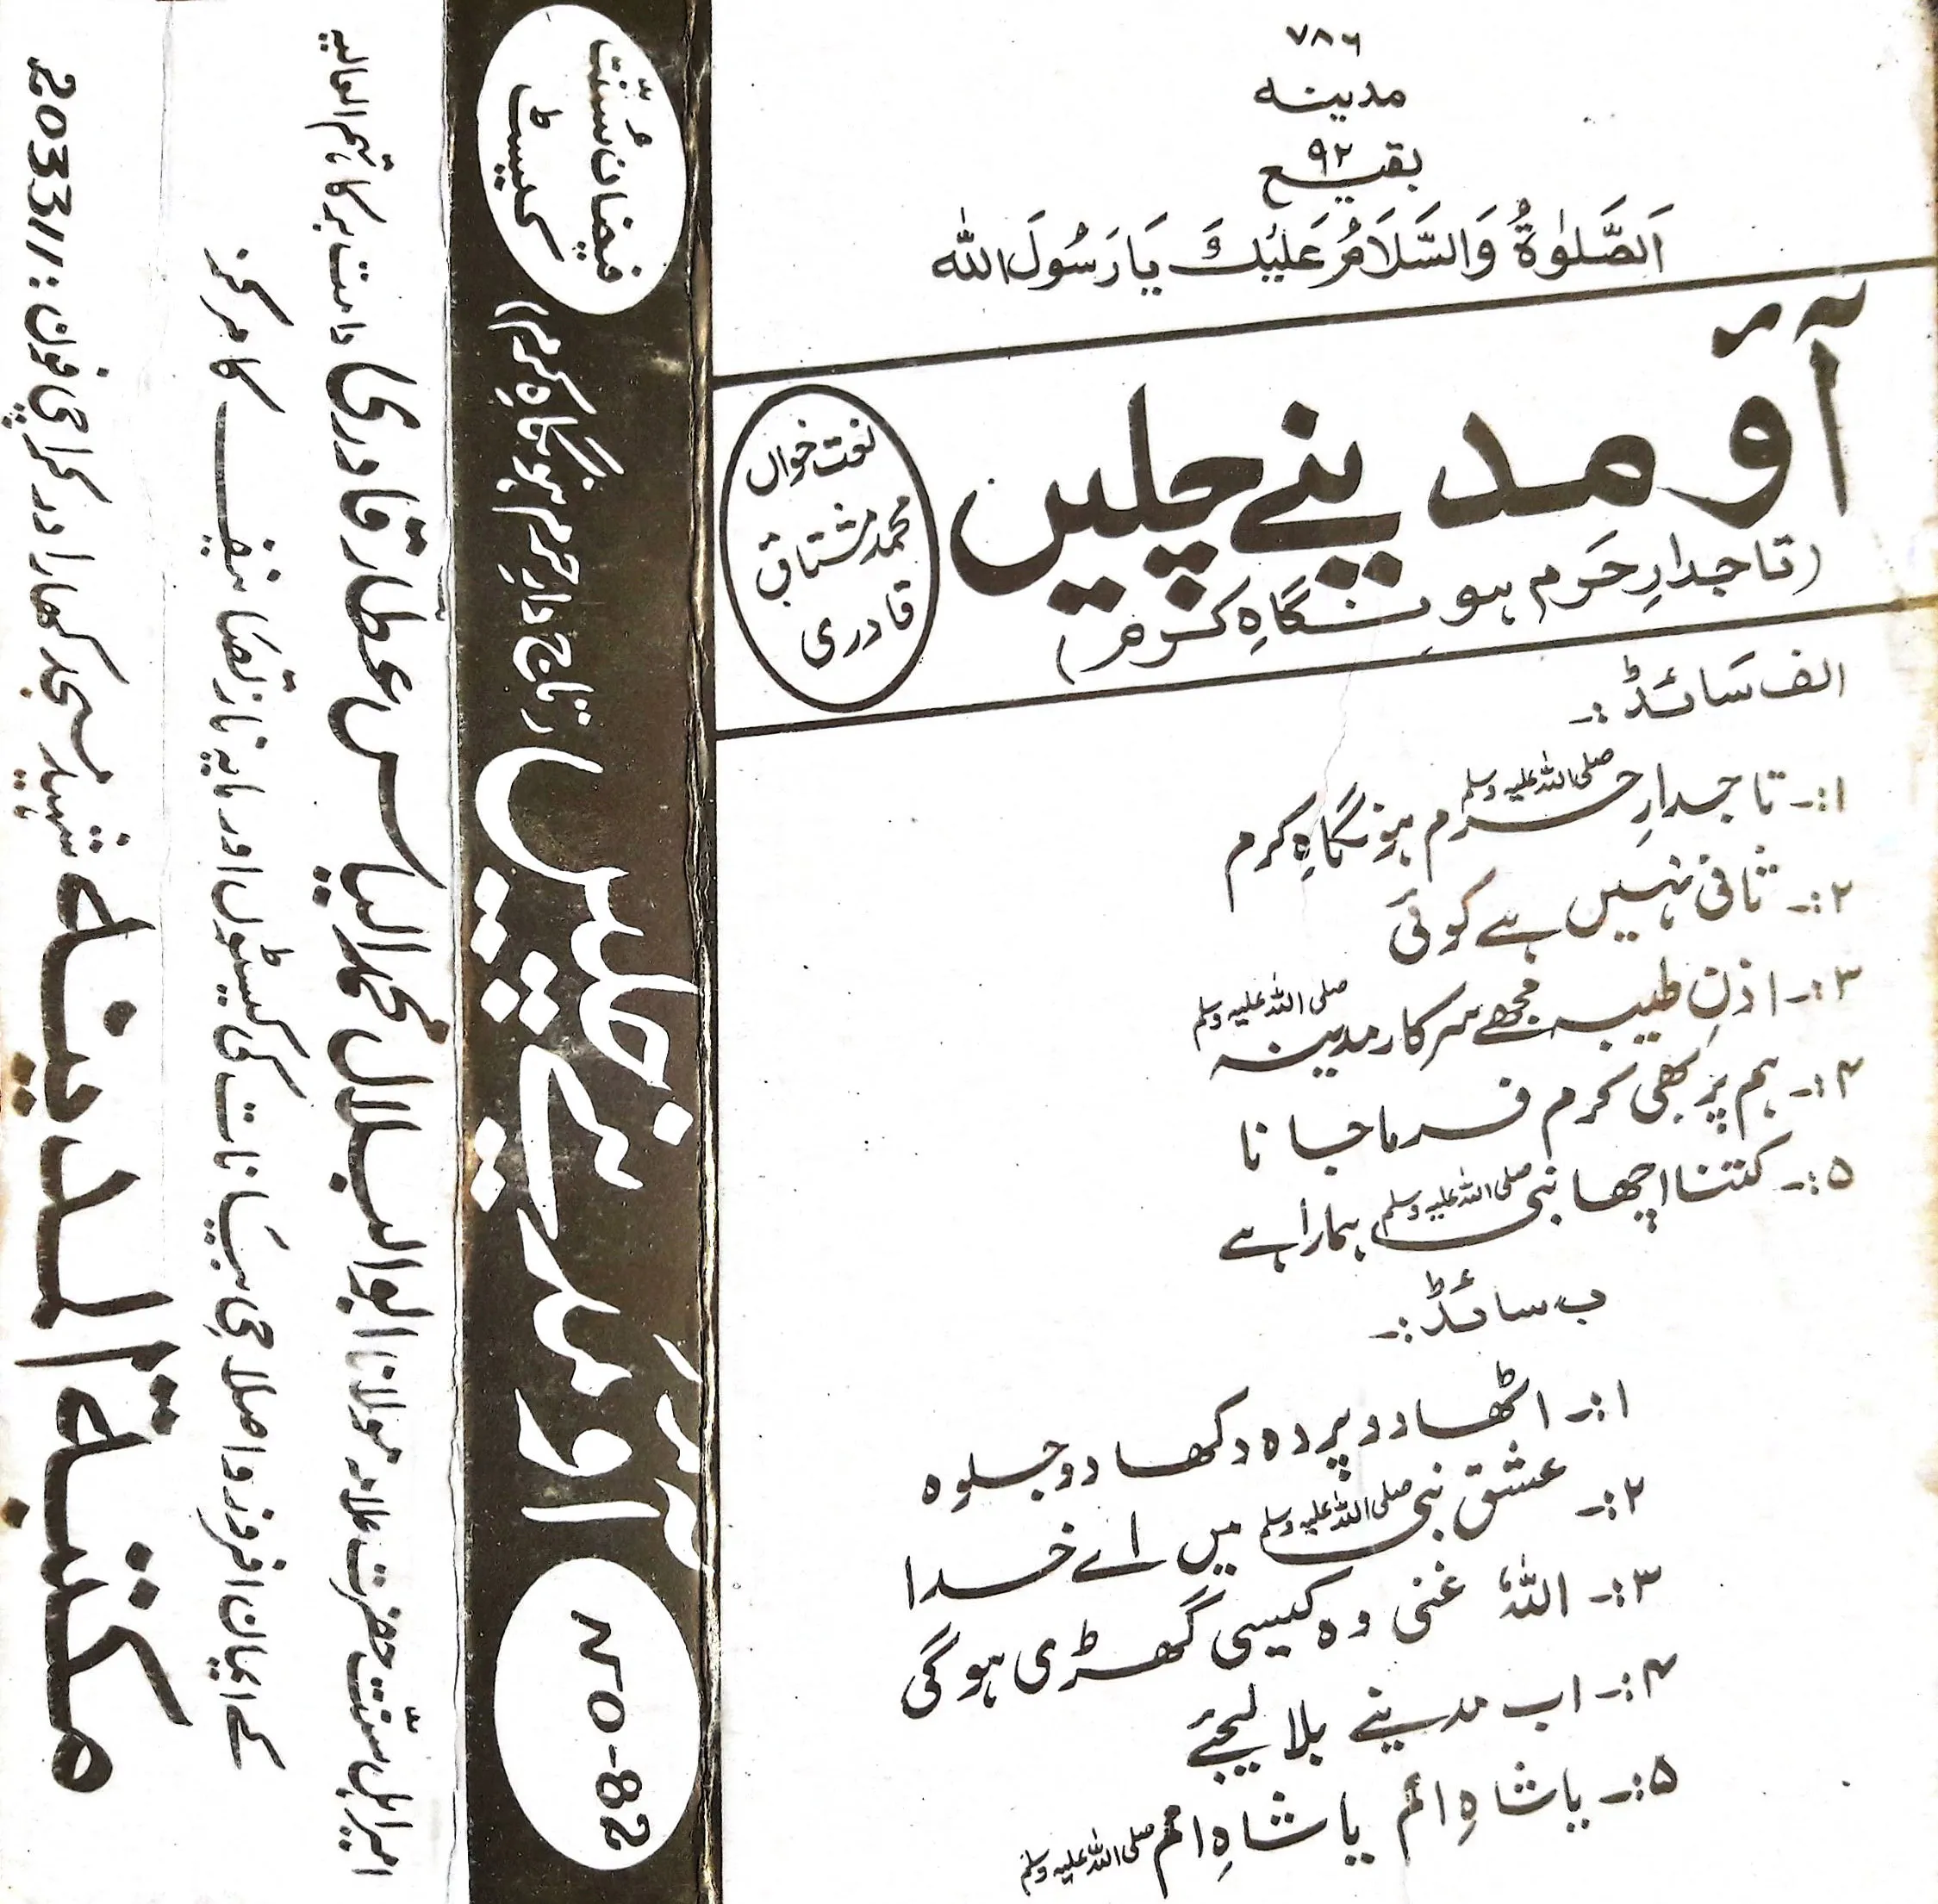 ۷۸۶
مدینہ
۹۲
بقیع
اَلصَّلوٰۃُ وَالسَّلَامُ عَلَیْكَ یَارَسُوْلَ اللّٰه
آؤ مدینے چلیں
(تاجدارِ حَرَم ہو نگاہِ کرم)
نعت خواں
محمد مشتاق
قادری
الف سَائڈ :۔
۱:۔ تاجدارِ حرم صلی اللہ علیہ وسلم ہو نگاہِ کرم
۲:۔ ثانی نہیں ہے کوئی
۳:۔ اذنِ طیبہ مجھے سرکار مدینہ صلی اللہ علیہ وسلم
۴:۔ ہم پر بھی کرم فرما جانا
۵:۔ کتنا اچھا نبی صلی اللہ علیہ وسلم ہمارا ہے
ب سائڈ :۔
۱:۔ اٹھا دو پردہ دکھا دو جلوہ
۲:۔ عشق نبی صلی اللہ علیہ وسلم میں اے خدا
۳:۔ اللہُ غنی وہ کیسی گھڑی ہوگی
۴:۔ اب مدینے بلا لیجئے
۵:۔ یا شاہِ امم یا شاہِ امم صلی اللہ علیہ وسلم
فیضانِ سُنّت
کیسٹ
آؤ مدینے چلیں (تاجدارِ حرم ہو نگاہِ کرم)
NO-82
امیر اہل سنّت حضرت علامہ مولانا ابوالبلال محمد الیاس عطّار قادری دامت برکاتہم العالیہ
کے ایمان افروز و اصلاحی بیَانات کی کیسٹوں اور مایہ ناز تصَانیف کا مرکز
مکتبۃ المدینہ شہید مسجد کھارادر کراچی فون: 203311